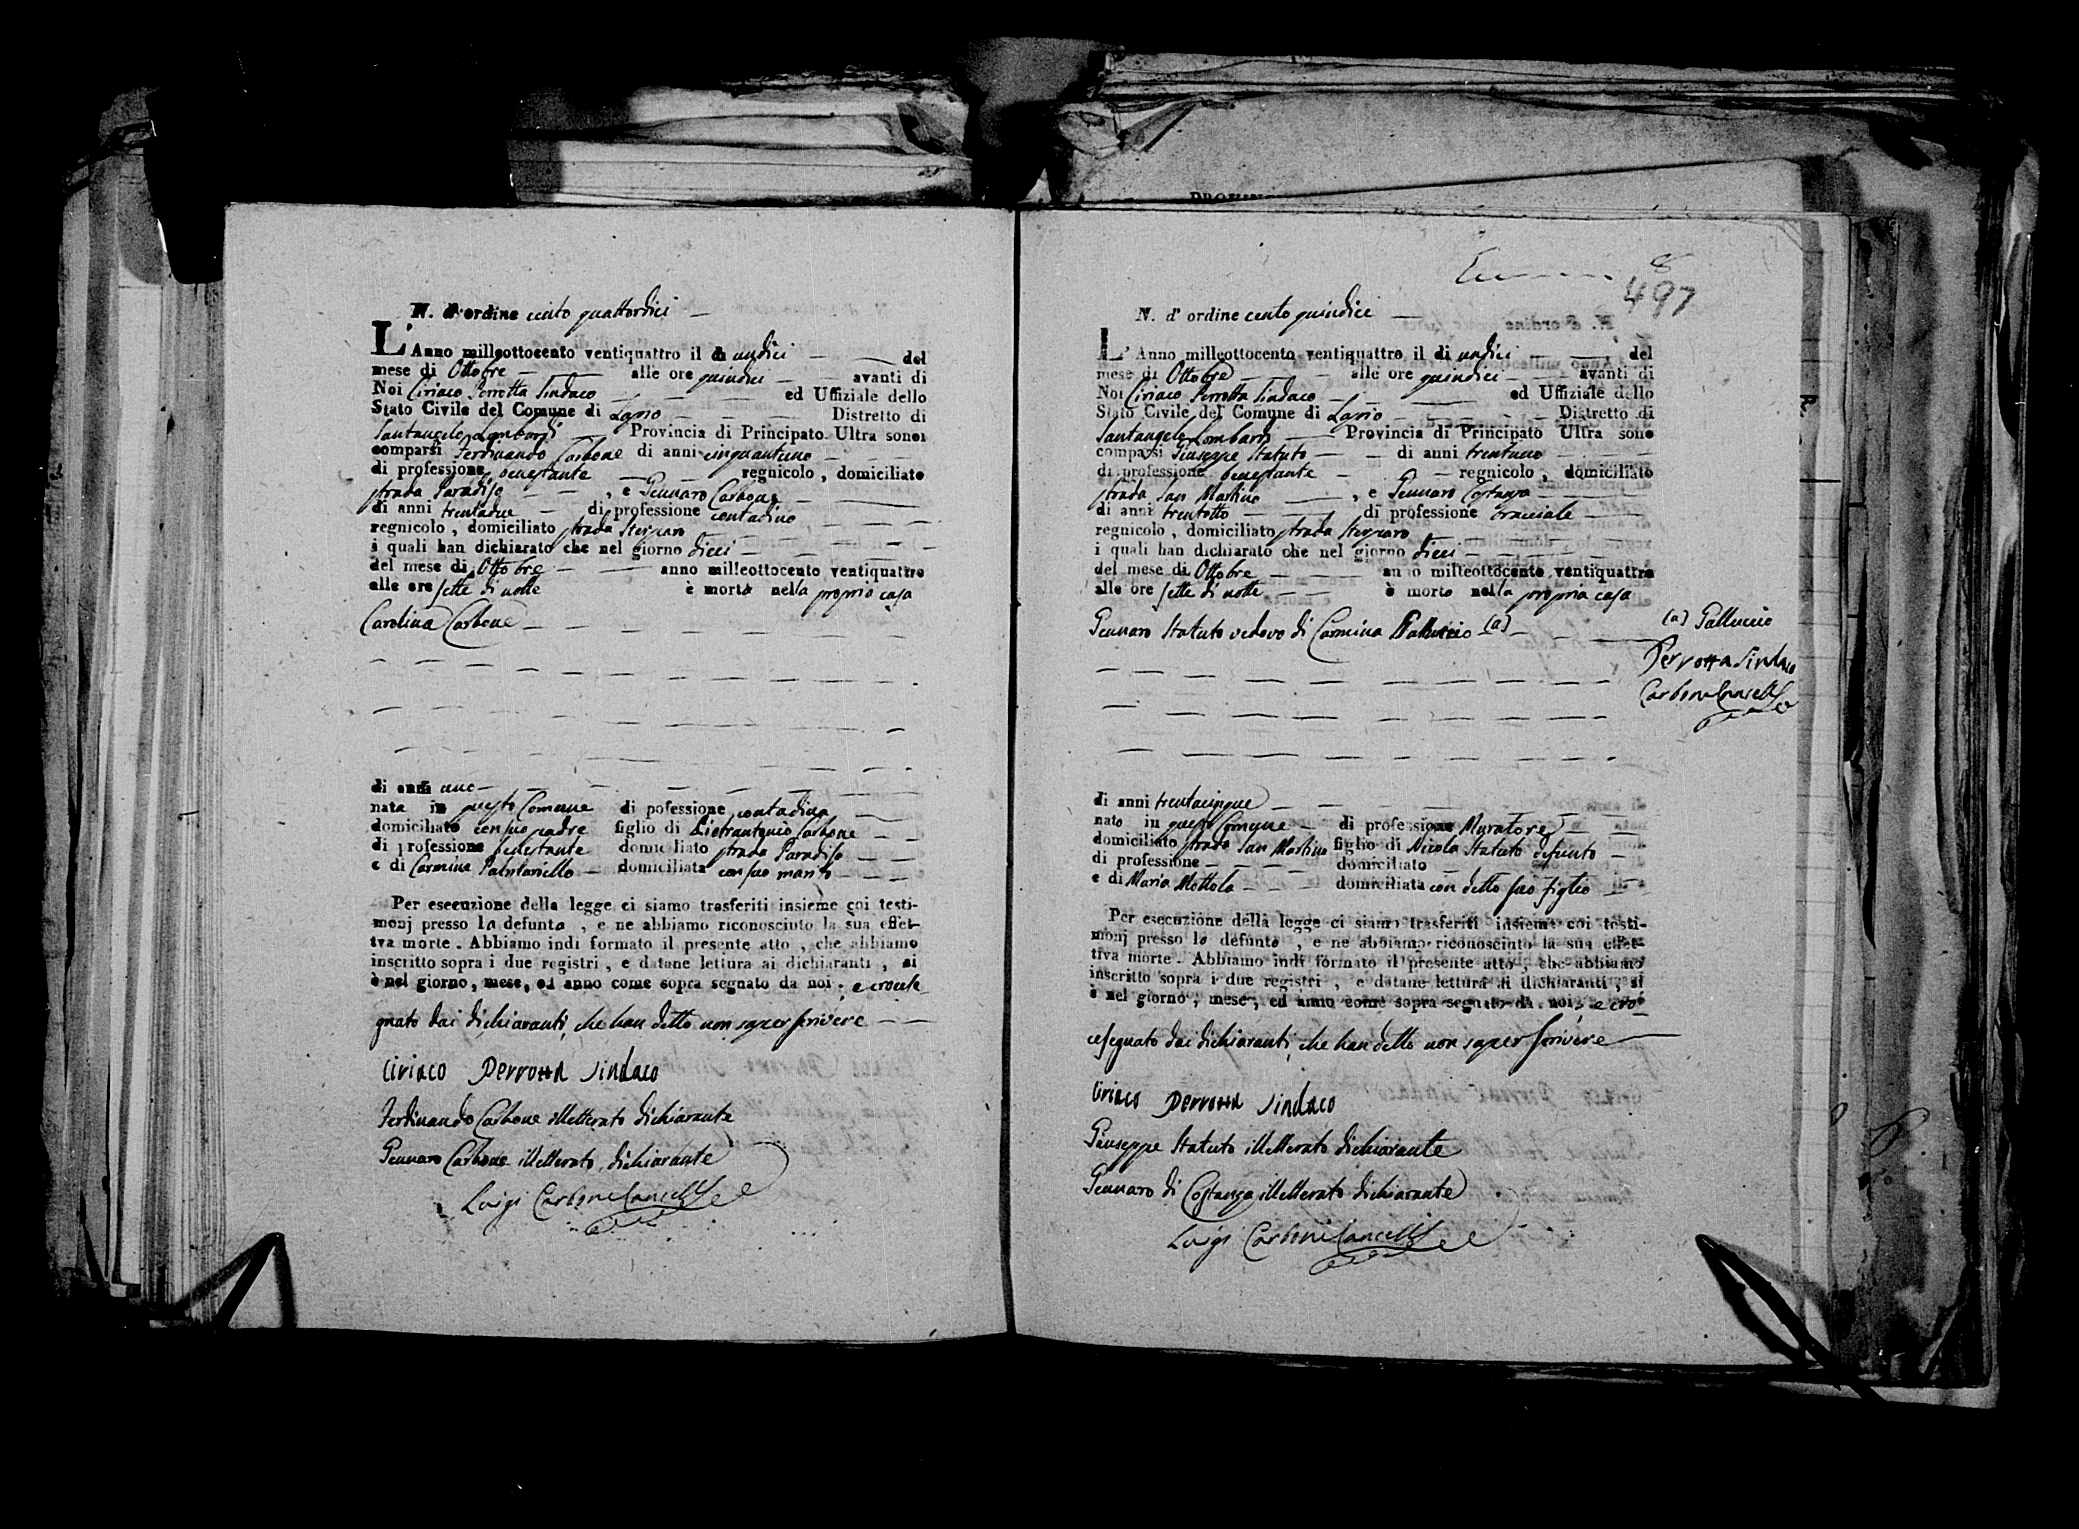 PROVINC
N. d'ordine cento quattordici
L'Anno milleottocento ventiquattro il dì undici del
mese di Ottobre alle ore quindici avanti di
Noi Ciriaco Perrotta Sindaco ed Uffiziale dello
Stato Civile del Comune di Distretto di
Santangelo Lombardi Provincia di Principato Ultra sono
comparsi Ferdinando Carbone di anni cinquantuno
di professione benestante regnicolo, domiciliato
strada Paradiso, e Gennaro Carbone
di anni trentadue di professione contadino
regnicolo, domiciliato strada
i quali han dichiarato che nel giorno dieci
del mese di Ottobre anno milleottocento ventiquattro
alle ore sette di notte è morta nella propria casa
Carolina Carbone
di anni uno
nata in questo Comune di pofessione contadina
domiciliata con suo padre figlio di Pietrantonio Carbone
di professione benestante domiciliato strada Paradiso
e di Carmina domiciliata con suo marito
Per esecuzione della legge ci siamo trasferiti insieme coi testi-
monj presso la defunta, e ne abbiamo riconosciuto la sua effet-
tva morte. Abbiamo indi formato il presente atto, che abbiamo
inscritto sopra i due registri, e datane lettura ai dichiaranti, si
è nel giorno, mese, ed anno come sopra segnato da noi, e crocese
gnato dai dichiaranti, che han detto non saper scrivere
Ciriaco Perrotta Sindaco
Ferdinando Carbone illetterato dichiarante
Gennaro Carbone illetterato dichiarante
Luigi Carbone Cancell
8
497
N. d'ordine cento quindici
L'Anno milleottocento ventiquattro il dì undici del
mese di Ottobre alle ore quindici avanti di
Noi Ciriaco Perrotta Sindaco ed Uffiziale dello
Stato Civile del Comune di Distretto di
Santangelo Lombardi Provincia di Principato Ultra sono
comparsi Giuseppe Statuto di anni trentuno
di professione benestante regnicolo, domiciliato
strada San Martino, e Gennaro Costanza
di anni trentotto di professione bracciale
regnicolo, domiciliato strada
i quali han dichiarato che nel giorno dieci
del mese di Ottobre anno milleottocento ventiquattro
alle ore sette di notte è morto nella propria casa
Gennaro Statuto vedovo di Carmina (a)
(a) Galluccio
Perrotta Sindaco
Carbone Cancell
di anni trentacinque
nato in questo Comune di professione Muratore
domiciliato strada San Martino figlio di Nicola Statuto defunto
di professione domiciliato
e di Maria Mottola domiciliata con detto suo figlio
Per esecuzione della legge ci siamo trasferiti insieme coi testi-
monj presso lo defunto, e ne abbiamo riconosciuto la sua effet-
tiva morte. Abbiamo indi formato il presente atto, che abbiamo
inscritto sopra i due registri, e datane lettura ai dichiaranti, si
è nel giorno, mese, ed anno come sopra segnato da noi, e cro-
cesegnato dai dichiaranti, che han detto non saper scrivere
Ciriaco Perrotta Sindaco
Giuseppe Statuto illetterato dichiarante
Gennaro di Costanza illetterato dichiarante
Luigi Carbone Cancell